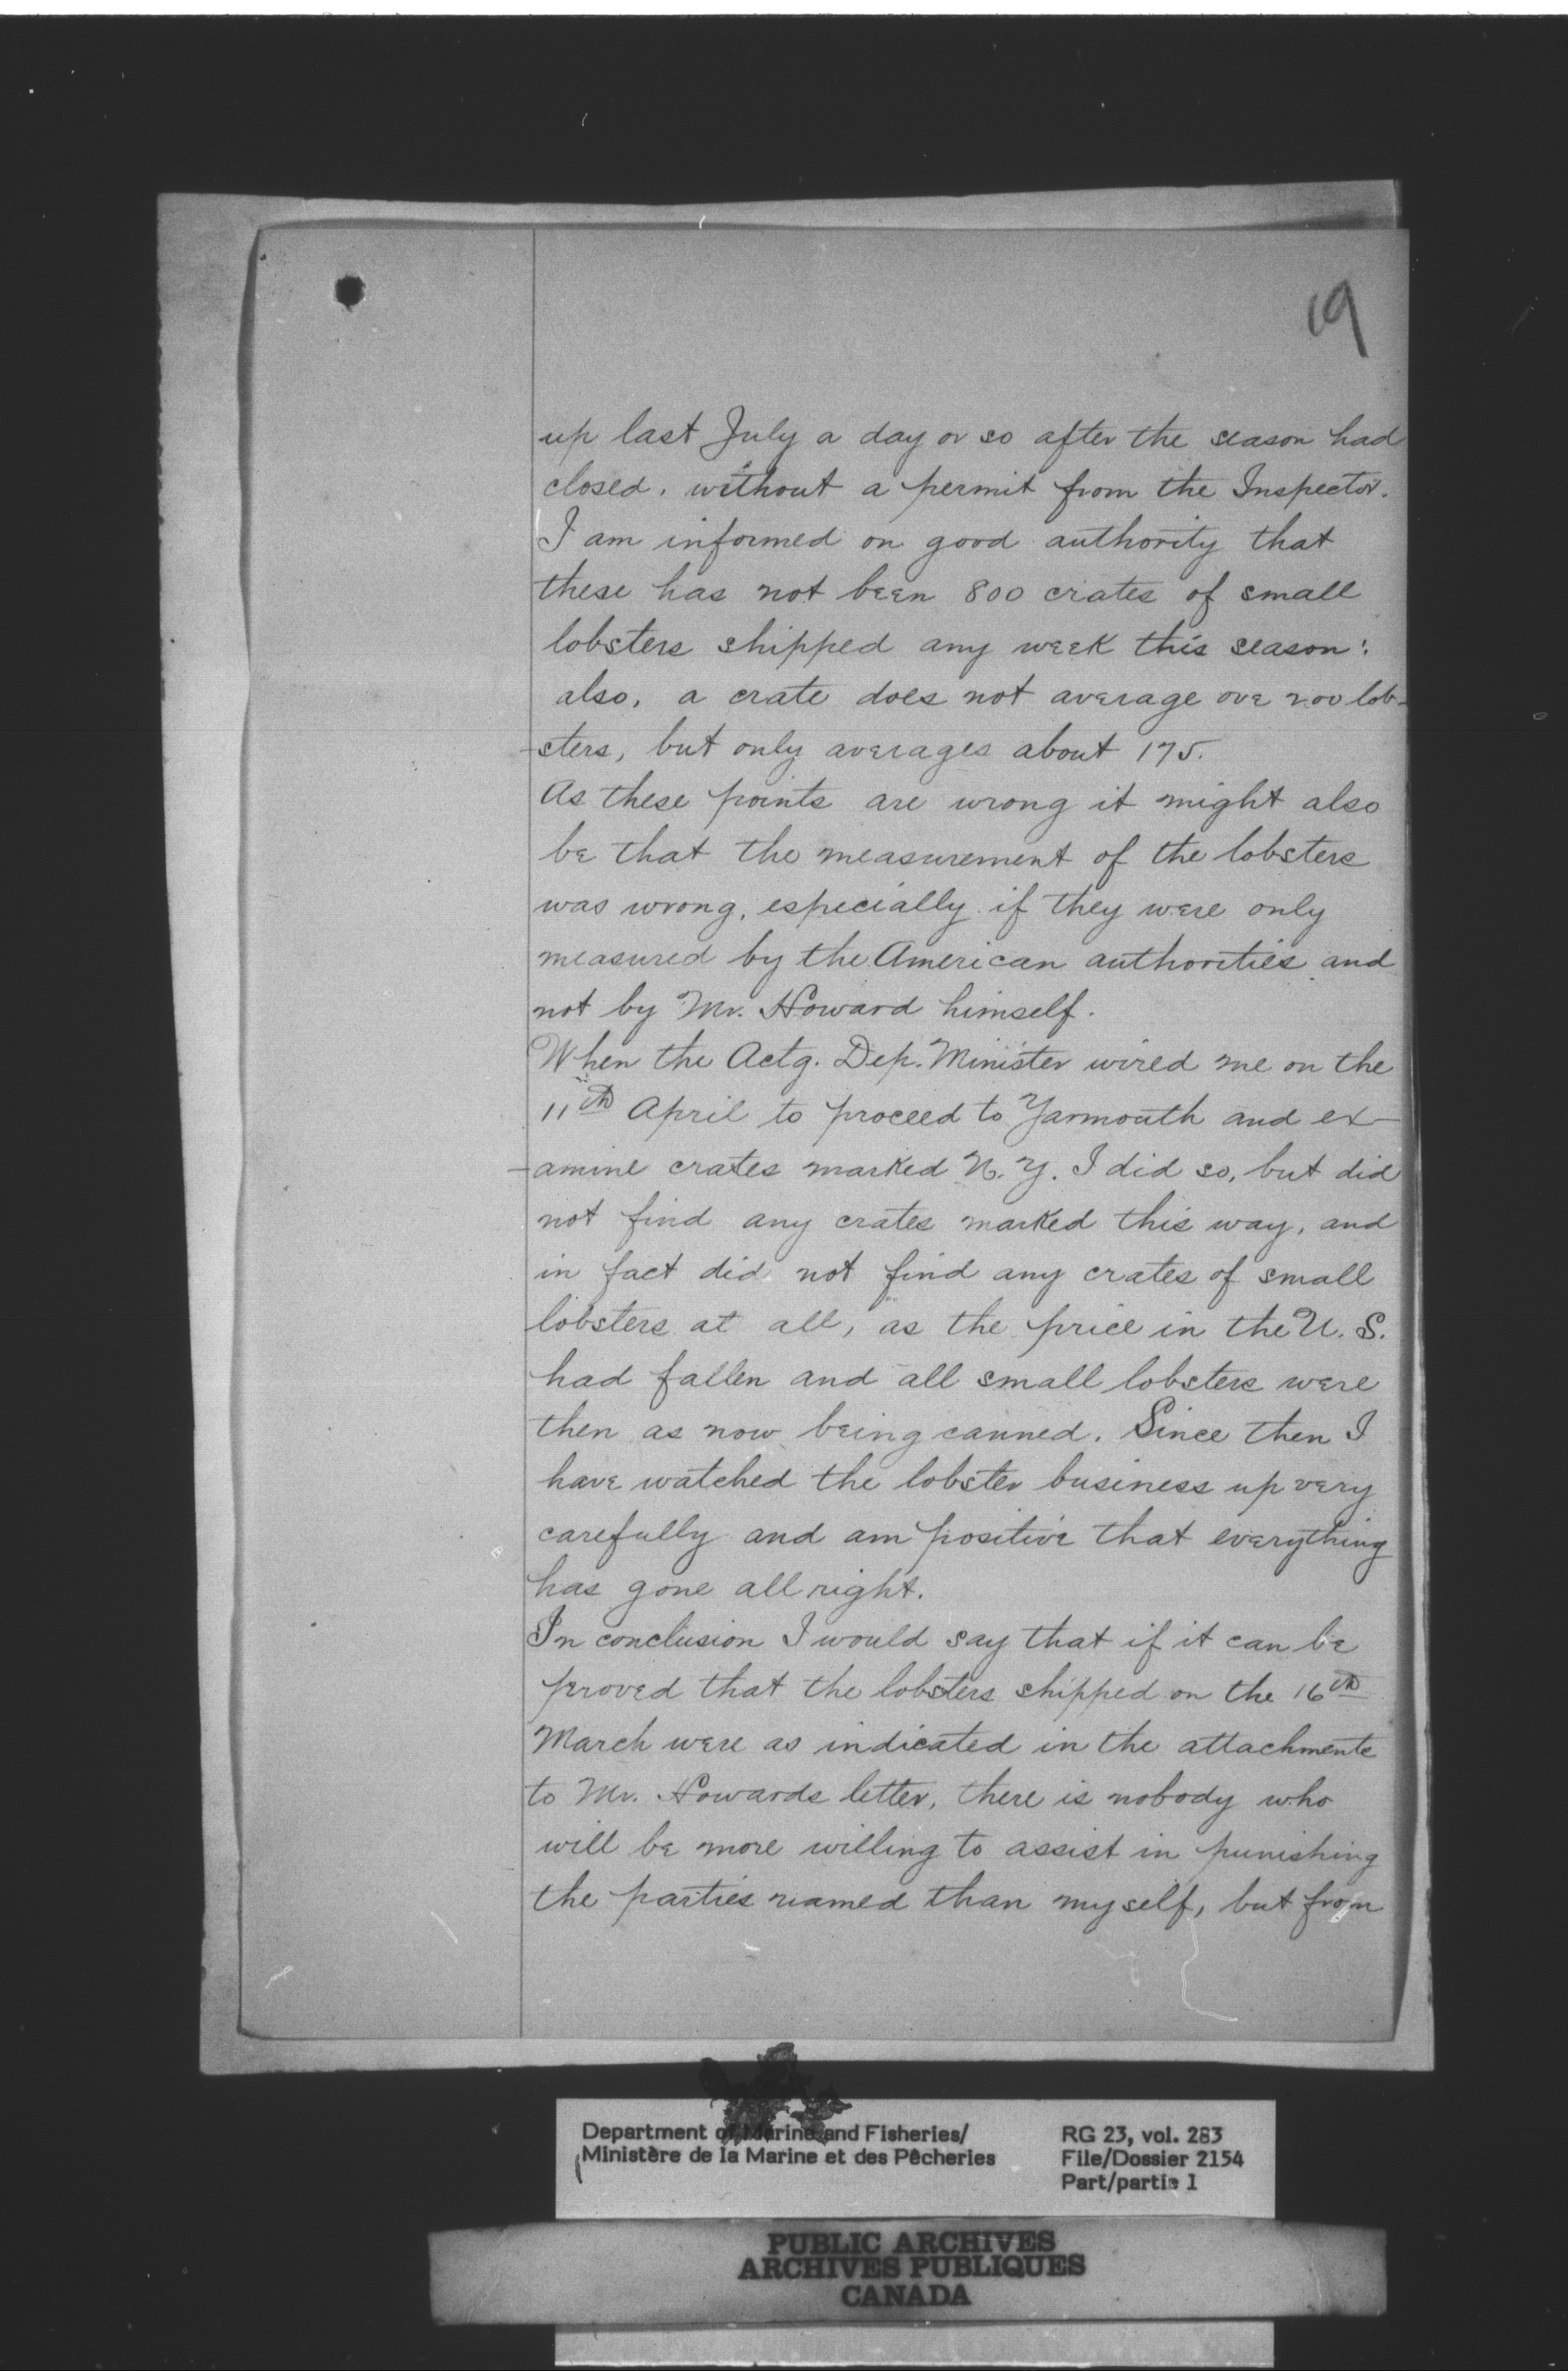 19
up last July a day or so after the season had
closed, without a permit from the Inspector.
I am informed on good authority that
these has not been 800 crates of small
lobsters shipped any week this season:
also, a crate does not average ove 200 lob-
-sters, but only averages about 175.
As these points are wrong it might also
be that the measurement of the lobsters
was wrong, especially if they were only
measured by the American authorities and
not by Mr. Howard himself.
When the Actg. Dep. Minister wired me on the
11th April to proceed to Yarmouth and ex-
-amine crates marked N.Y. I did so, but did
not find any crates marked this way, and
in fact did not find any crates of small
lobsters at all, as the price in the U.S.
had fallen and all small lobsters were
then as now being canned. Since then I
have watched the lobster business up very
carefully and am positive that everything
has gone all right.
In conclusion I would say that if it can be
proved that the lobsters shipped on the 16th
March were as indicated in the attachments
to Mr. Howards letter, there is nobody who
will be more willing to assist in punishing
the parties named than myself, but from
Department of Marine and Fisheries/
Ministère de la Marine et des Pêcheries
RG 23, vol. 283
File/Dossier 2154
Part/partie 1
PUBLIC ARCHIVES
ARCHIVES PUBLIQUES
CANADA